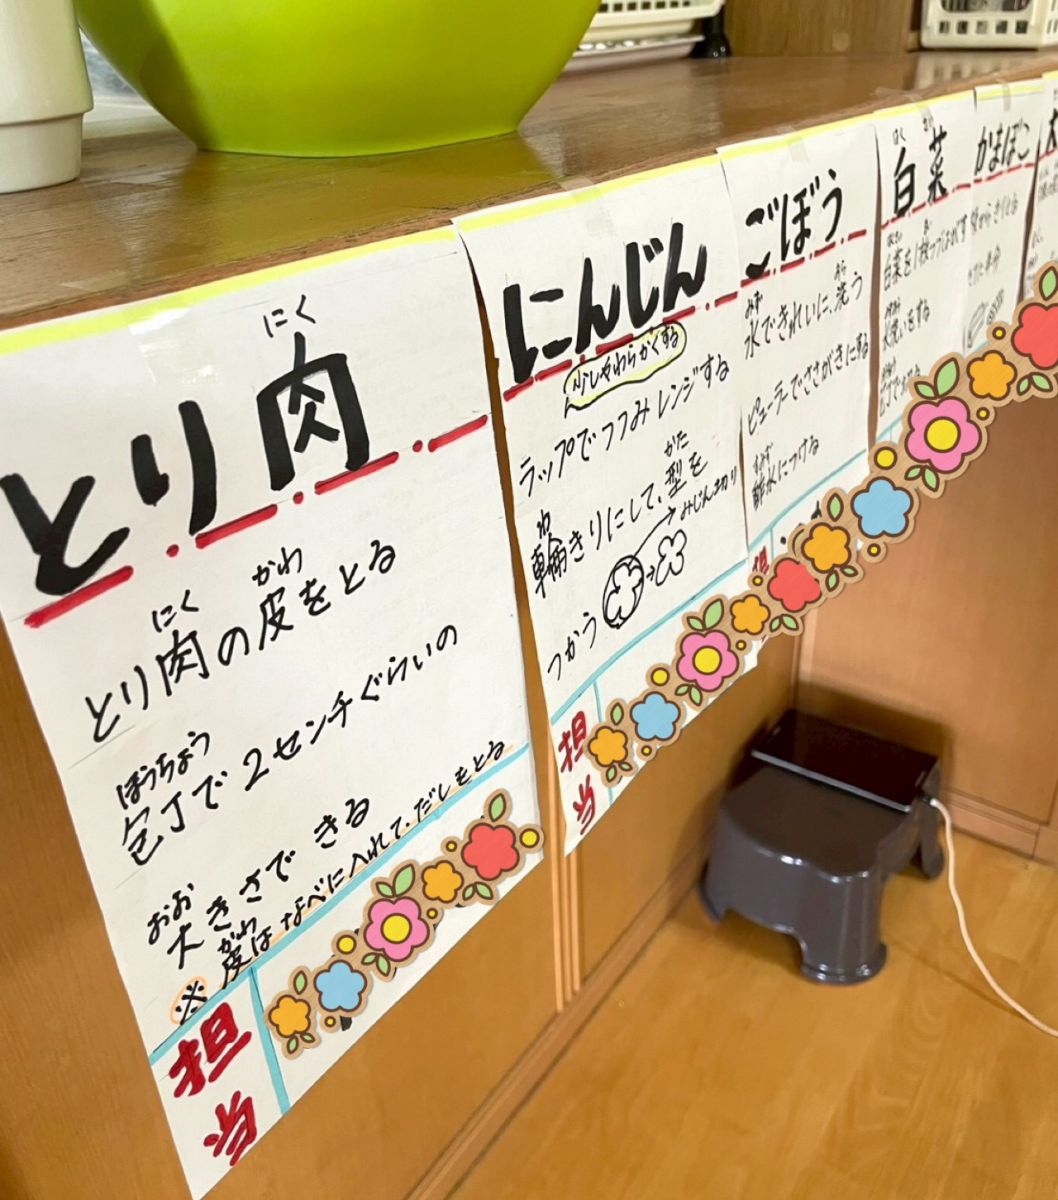 にく
とり肉
にく かわ
とり肉の皮をとる
ほうちょう
包丁で2センチぐらいの
おお
大きさで きる
かわ
※皮はなべに入れて、だしをとる
担当
にんじん
少しやわらかくする
ラップでつつみレンジする
わ かた
輪きりにして、型を
つかう
みじん切り
担当
ごぼう
みず あら
水できれいに、洗う
ピューラーでささがきにする
すみず
酢水につける
担
はく さい
白菜
はくさい
白菜を1枚づつはがす
水洗いをする
かまぼこ